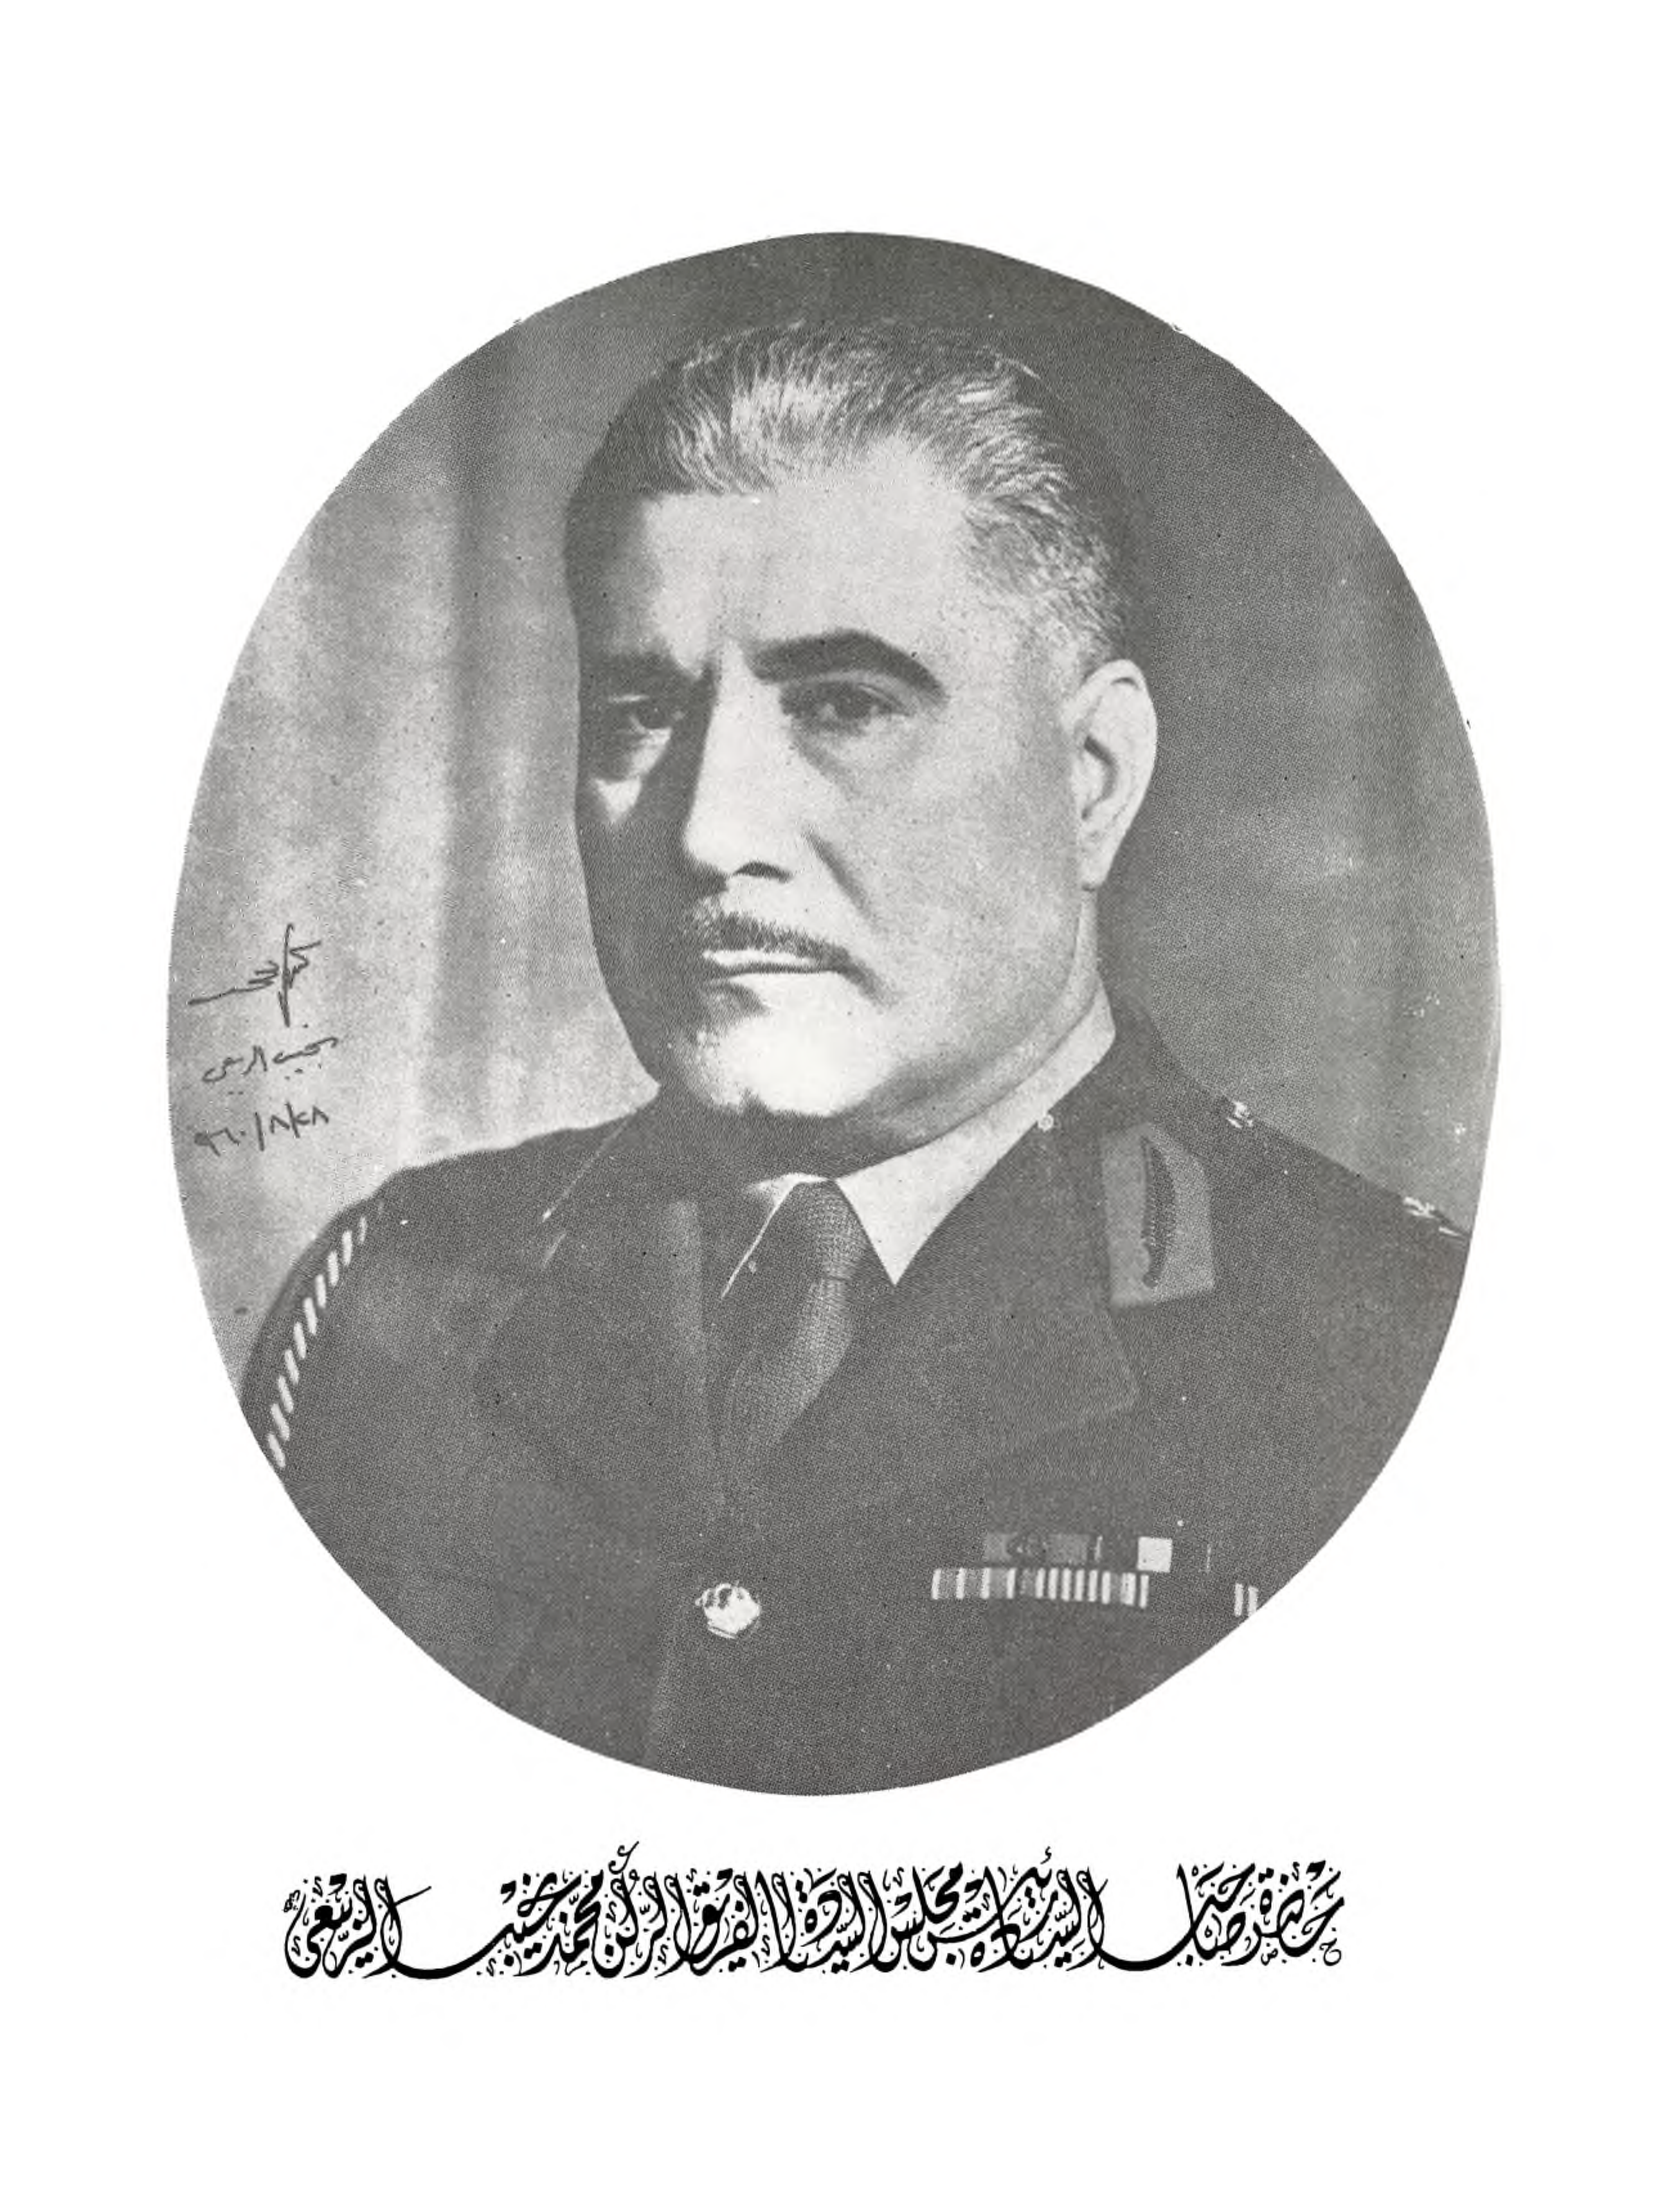 نجيب الربيعي
٩٦٠/٨/٢٨
حضرة صاحب السيادة رئيس مجلس السيادة الفريق الركن محمد نجيب الربيعي